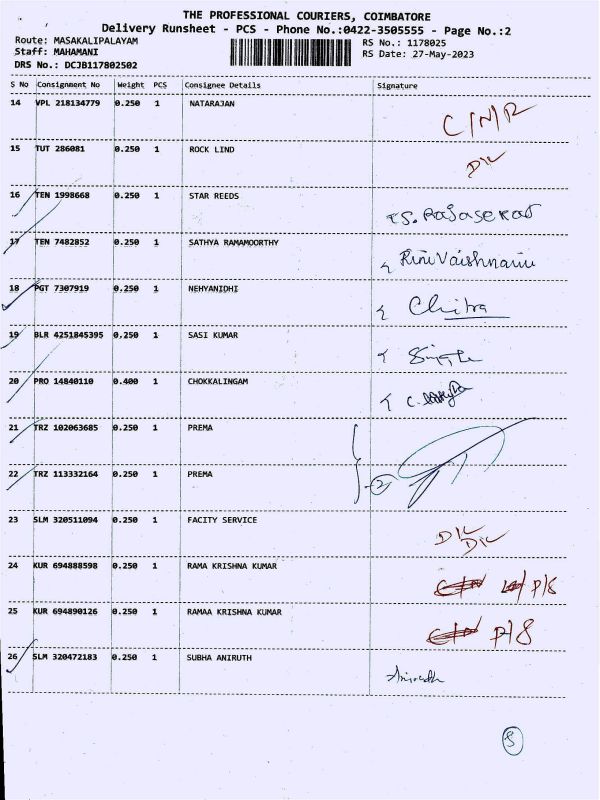 THE PROFESSIONAL COURIERS, COIMBATORE
Delivery Runsheet - PCS - Phone No.:0422-3505555 - Page No.:2
Route: MASAKALIPALAYAM RS No.: 1178025
Staff: MAHAMANI RS Date: 27-May-2023
DRS No.: DCJB117802502
S No Consignment No Weight PCS Consignee Details Signature
14 VPL 218134779 0.250 1 NATARAJAN C/N/R
15 TUT 286081 0.250 1 ROCK LIND D/L
16 TEN 1998668 0.250 1 STAR REEDS TS. Rajasekar
17 TEN 7482852 0.250 1 SATHYA RAMAMOORTHY Rini Vaishnavi
18 PGT 7307919 0.250 1 NEHYANIDHI Chitra
19 BLR 4251845395 0.250 1 SASI KUMAR
20 PRO 14840110 0.400 1 CHOKKALINGAM
21 TRZ 102063685 0.250 1 PREMA
22 TRZ 113332164 0.250 1 PREMA 2
23 SLM 320511094 0.250 1 FACITY SERVICE D/L D/L
24 KUR 694888598 0.250 1 RAMA KRISHNA KUMAR P/S
25 KUR 694890126 0.250 1 RAMAA KRISHNA KUMAR P/S
26 SLM 320472183 0.250 1 SUBHA ANIRUTH Anirudh